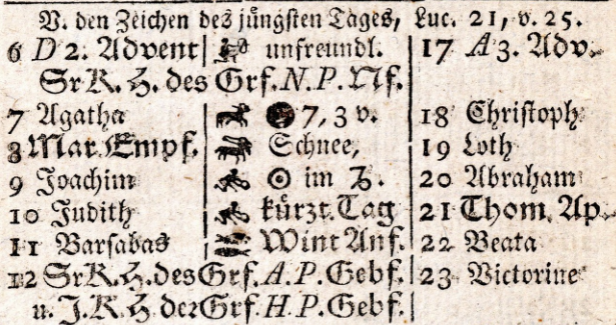 V. den Zeichen des jüngsten Tages, Luc. 21, v. 25.
6 D 2. Advent unfreundl. 17 A 3. Adv.
Sr K. H. des Grf. N. P. Nf.
7 Agatha 7, 3 v. 18 Christoph
8 Mar. Empf. Schnee, 19 Loth
9 Joachim ☉ im ♑. 20 Abraham
10 Judith kürzt. Tag 21 Thom. Ap.
11 Barsabas Wint Anf. 22 Beata
12 Sr K. H. des Grf. A. P. Gebf. 23 Victorine
u. J. K. H der Grf. H. P. Gebf.